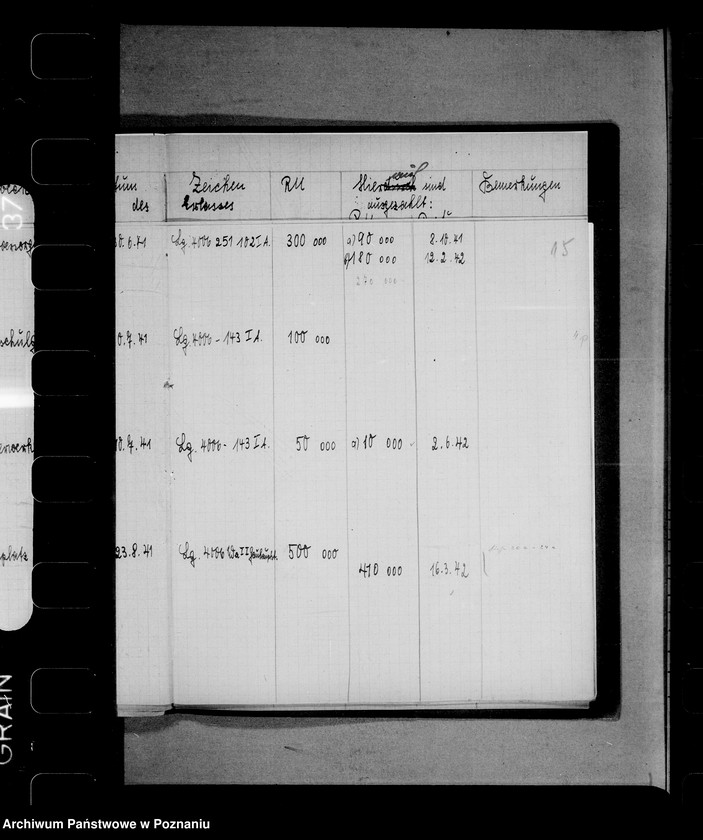 tum Zeichen RM Hierauf sind Bemerkungen
des Erlasses ausgezahlt:
20.6.41 Lg. 4006 251 102 I A. 300 000 a) 90 000 8.10.41 15
b) 180 000 12.2.42
270 000
0.7.41 Lg. 4006 - 143 I A. 100 000
10.7.41 Lg. 4006 - 143 I A. 50 000 a) 10 000 2.6.42
platz 23.8.41 Lg. 4006 II 500 000
410 000 16.3.42
37
GRAIN
Archiwum Państwowe w Poznaniu